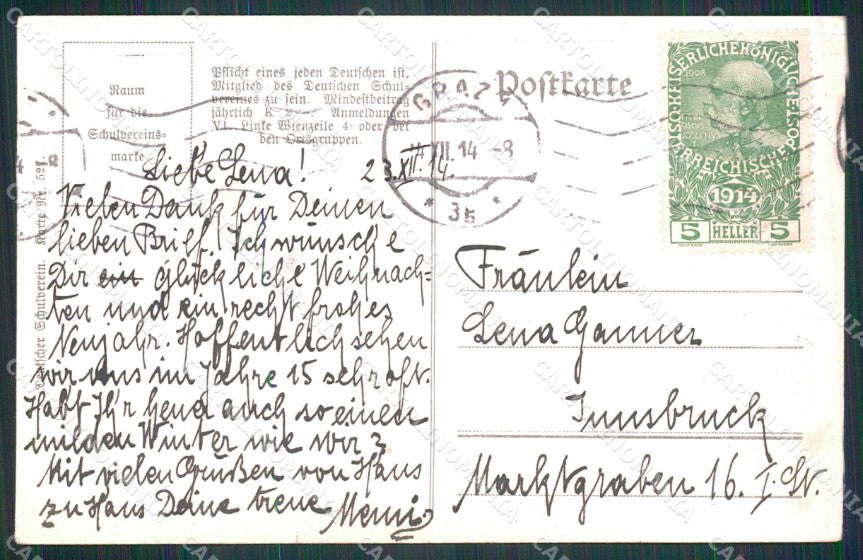 Raum
für die
Schulvereins-
marke.
Pflicht eines jeden Deutschen ist,
Mitglied des Deutschen Schul-
vereines zu sein. Mindestbeitrag
jährlich K Anmeldungen
VI. Linke Wienzeile 4 oder bei
den Ortsgruppen.
Postkarte
GRAZ
XII.14-8
* 3b
1908
1914
5 HELLER 5
Deutscher Schulverein. Karte Nr. 527.
Liebe Lena! 23.XII.14.
Vielen Dank für Deinen
lieben Brief! Ich wünsche
Dir ein glückliche Weihnach-
ten und ein recht frohes
Neujahr. Hoffentlich sehen
wir uns im Jahre 15 sehr oft.
Habt Ihr heuer auch so einen
milden Winter wie wir?
Mit vielen Grüßen von Haus
zu Haus Deine treue
Fräulein
Lena
Innsbruck
Marktgraben 16. I. St.
CARTOLINOMANIA